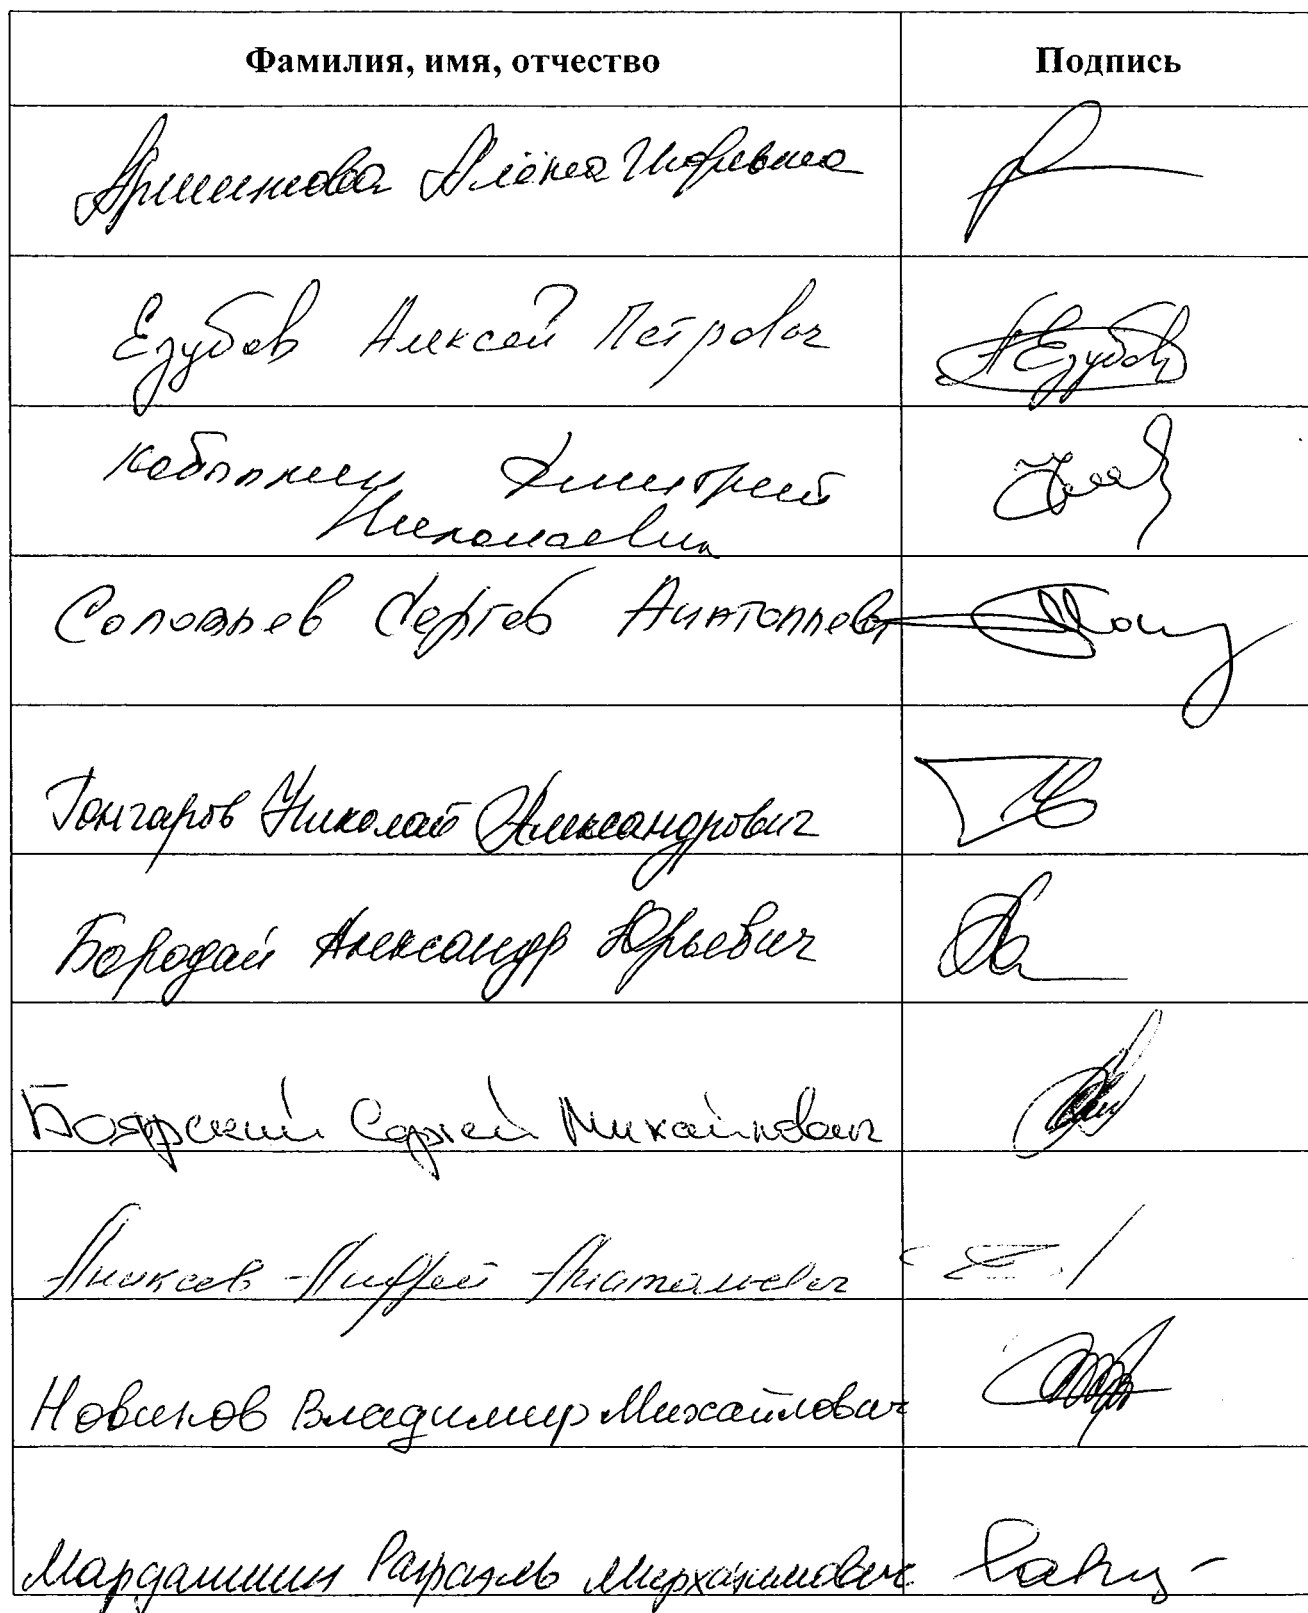 Фамилия, имя, отчество Подпись
Аршинова Алёна Игоревна
Езубов Алексей Петрович АЕзубов
Кобылкин Дмитрий
Николаевич
Соловьев Сергей Анатольевич
Гончаров Николай Александрович
Бородай Александр Юрьевич
Боярский Сергей Михайлович
Аникеев Андрей Анатольевич
Новиков Владимир Михайлович
Мардамшин Рафаэль Мирхатимович